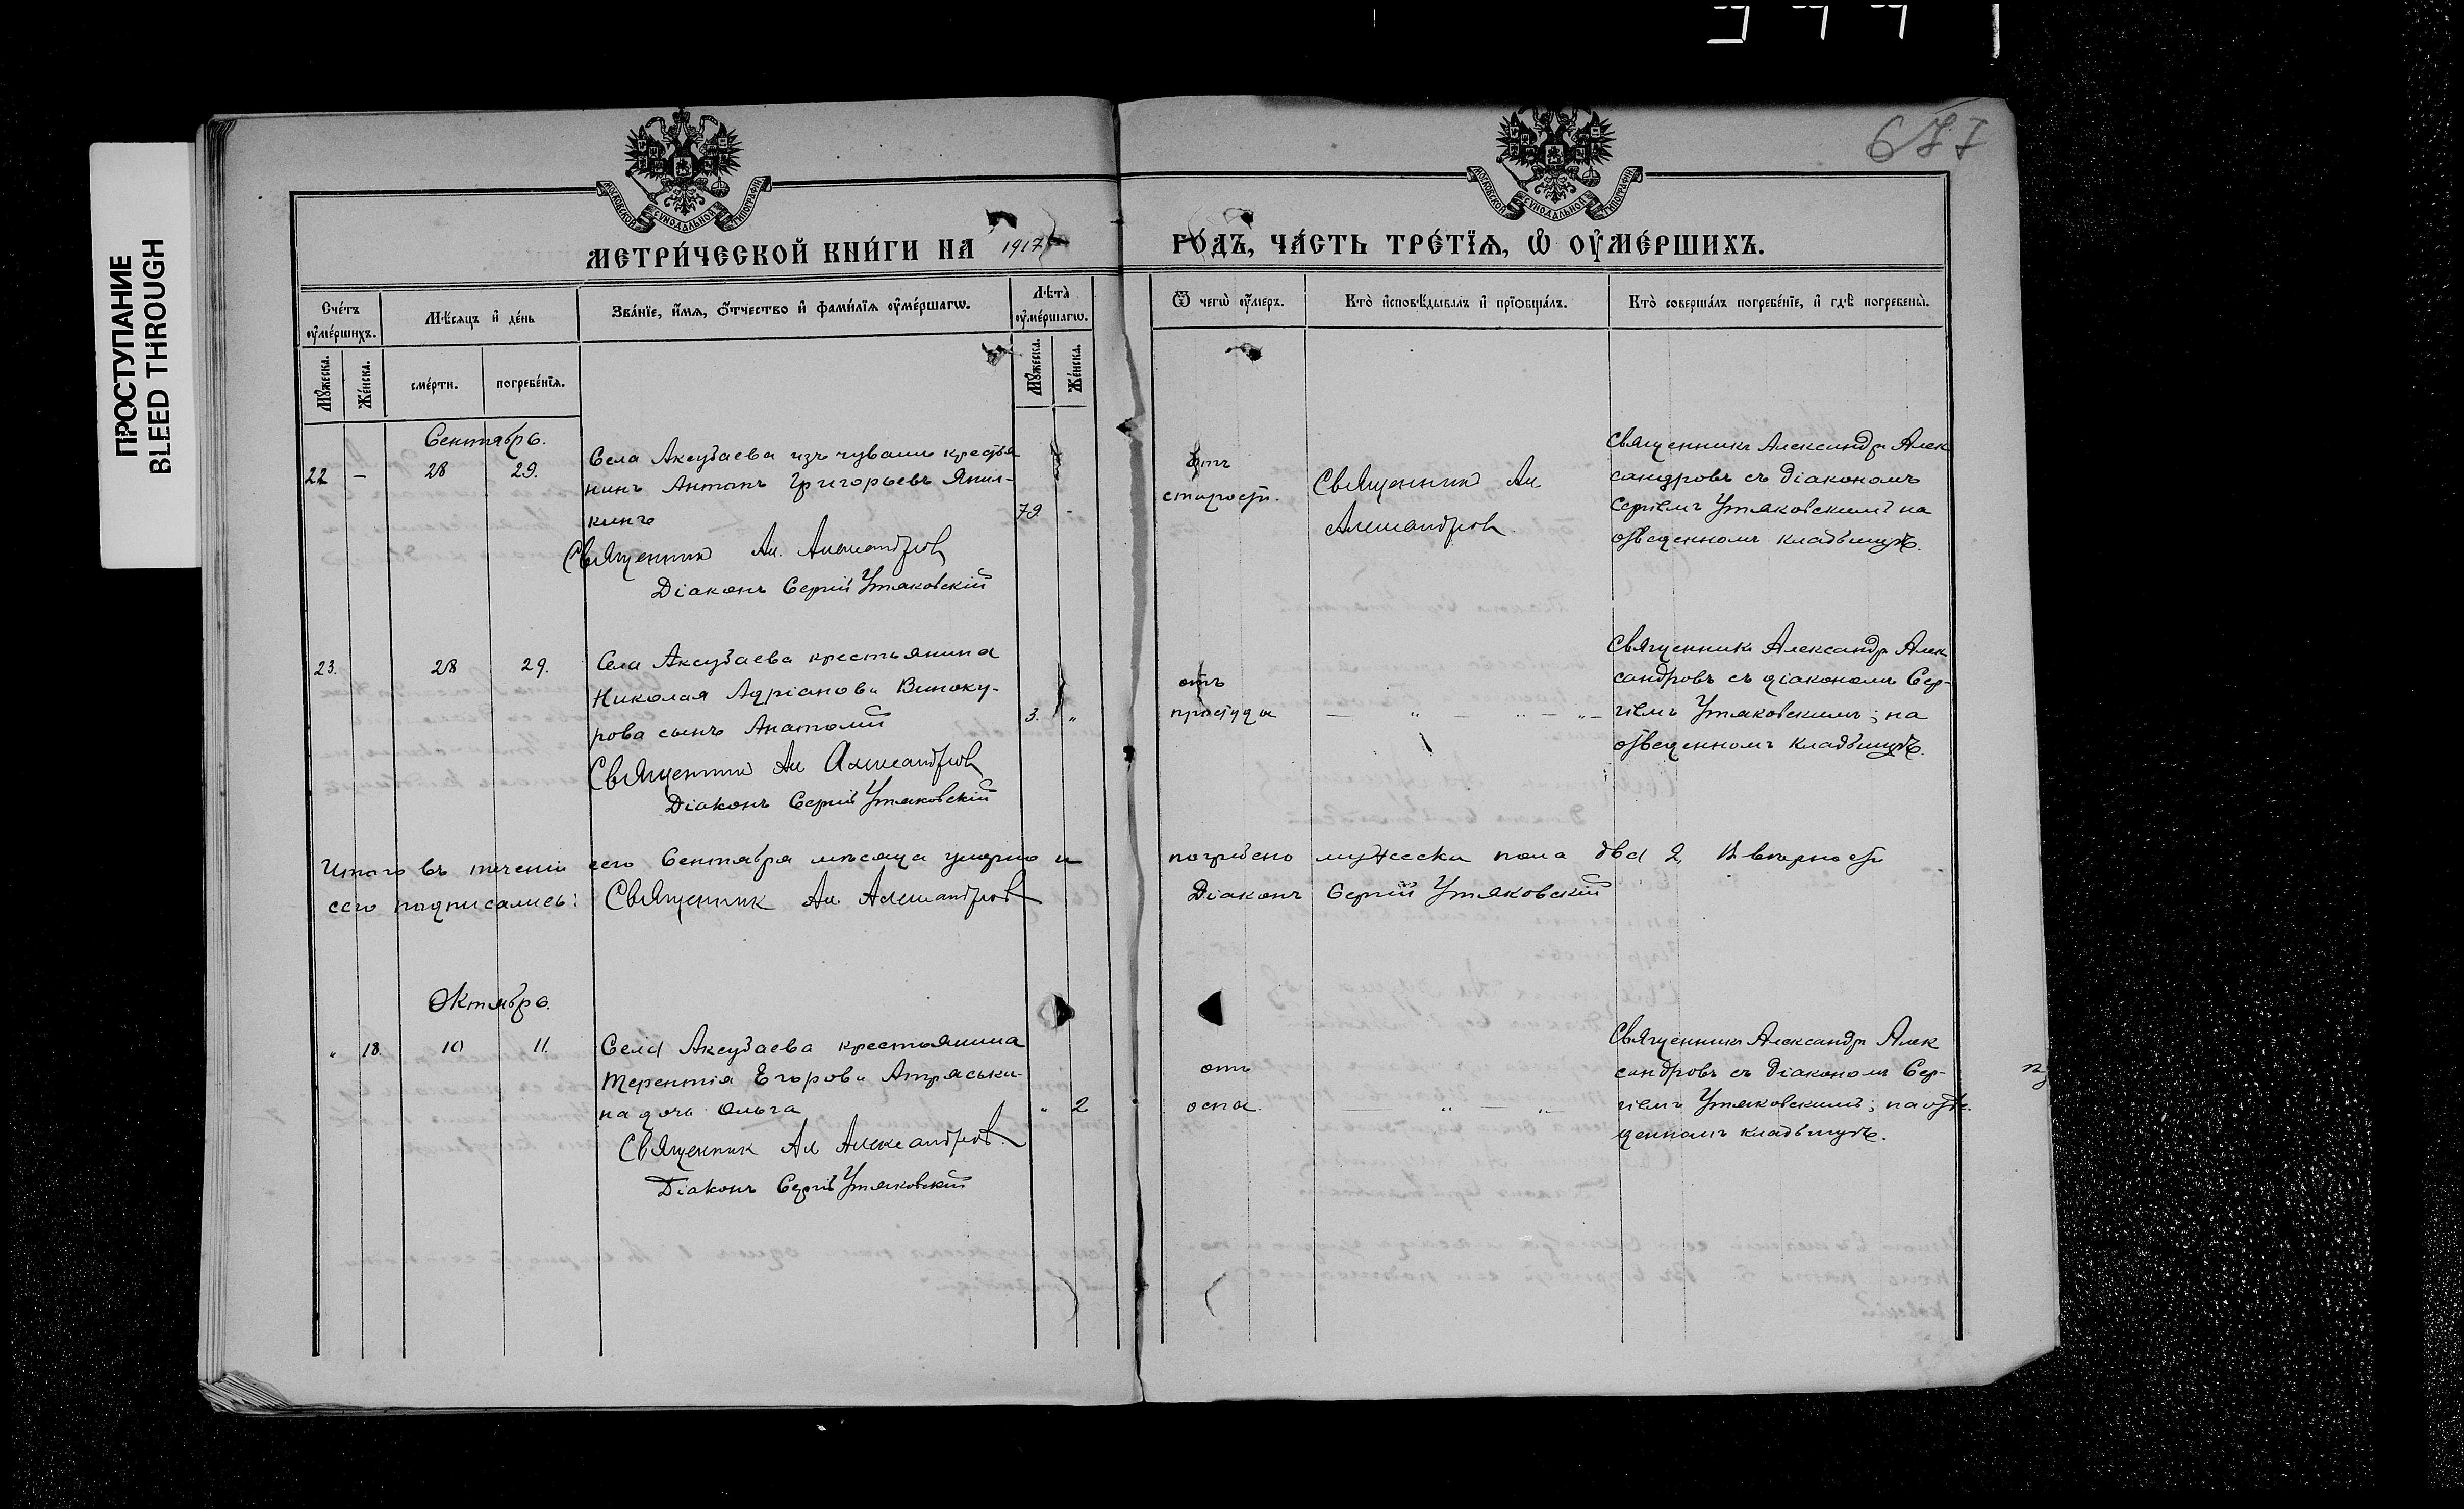 ПРОСТУПАНИЕ
BLEED THROUGH
МОСКОВСКОЙ СѴНОДАЛЬНОЙ ТИПОГРАФІИ
МОСКОВСКОЙ СѴНОДАЛЬНОЙ ТИПОГРАФІИ
МЕТРИ́ЧЕСКОЙ КНИ́ГИ НА 1917
ГО́ДЪ, ЧА́СТЬ ТРЕ́ТЇѦ, Ѡ҆ ОУ҆МЕ́РШИХЪ.
Сче́тъ оу҆ме́ршихъ.
Мѣ́сяцъ и҆ де́нь
Зва́нїе, и҆́мѧ, ѻ҆́тчество и҆ фами́лїѧ оу҆ме́ршагѡ.
Лѣта̀ оу҆ме́ршагѡ.
Ѿ чегѡ̀ оу҆́меръ.
Кто̀ и҆сповѣ́дывалъ и҆ прїѡбща́лъ.
Кто̀ соверша́лъ погребе́нїе, и҆ гдѣ̀ погребены̀.
Мꙋ́жеска.
Же́нска.
сме́рти.
погребе́нїѧ.
Мꙋ́жеска.
Же́нска.
Сентябрь.
22 — 28 29.
Села Аксубаева изъ чувашъ крестья
нинъ Антонъ Григорьевъ Яшил-
кинъ
79. -
Священникъ Ал. Александровъ
Діаконъ Сергій Утяковскій
отъ
старости.
Священникъ Ал
Александровъ.
Священникъ Александръ Алек
сандровъ съ діакономъ
Сергіемъ Утяковскимъ на
отведенномъ кладбищѣ.
23. 28 29.
Села Аксубаева крестьянина
Николая Адріанова Виноку-
рова сынъ Анатолій
3. „
Священникъ Ал Александровъ
Діаконъ Сергій Утяковскій
отъ
простуды
— „ — „ — „ —
Священникъ Александръ Алек
сандровъ съ діакономъ Сер-
гіемъ Утяковскимъ; на
отведенномъ кладбищѣ.
Итого въ теченіи сего Сентября мѣсяца умерло и погребено мужеска пола два 2, въ вѣрности
сего подписались: Священникъ Ал Александровъ Діаконъ Сергій Утяковскій
Октябрь.
„ 18. 10 11.
Села Аксубаева крестьянина
Терентія Егорова Атряськи-
на дочь Ольга
„ 2
Священникъ Ал Александровъ.
Діаконъ Сергій Утяковскій
отъ
оспы.
„ — „
Священникъ Александръ Алек
сандровъ съ діакономъ Сер-
гіемъ Утяковскимъ; на отве-
денномъ кладбищѣ.